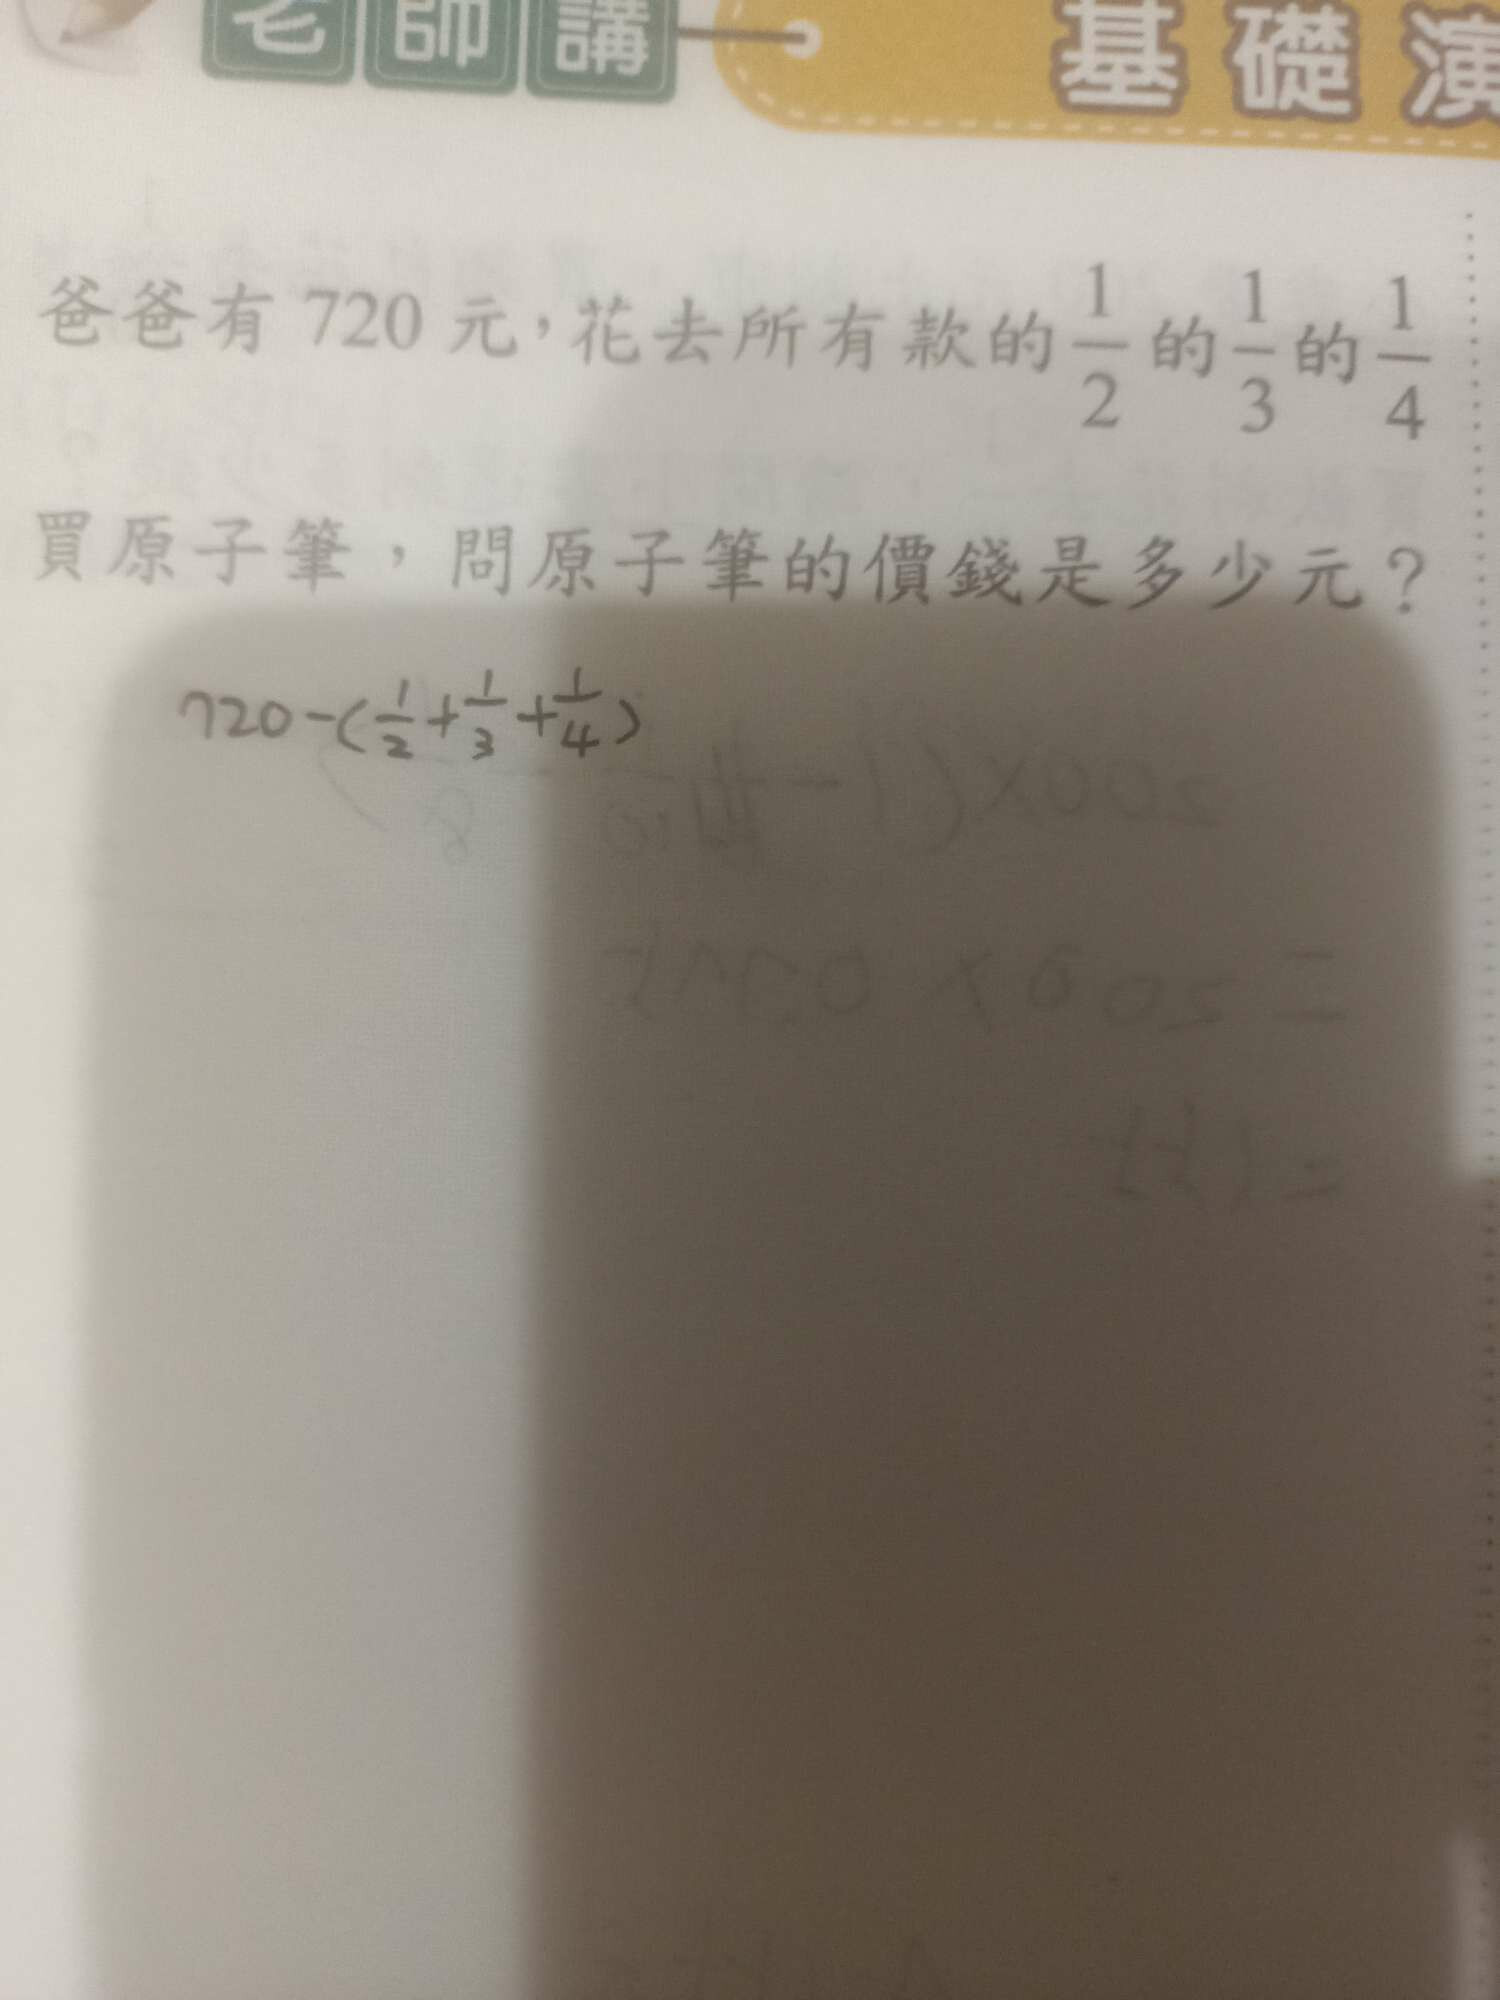 老師講 基礎演
爸爸有 720 元，花去所有款的 1/2 的 1/3 的 1/4
買原子筆，問原子筆的價錢是多少元？
720-(1/2+1/3+1/4)